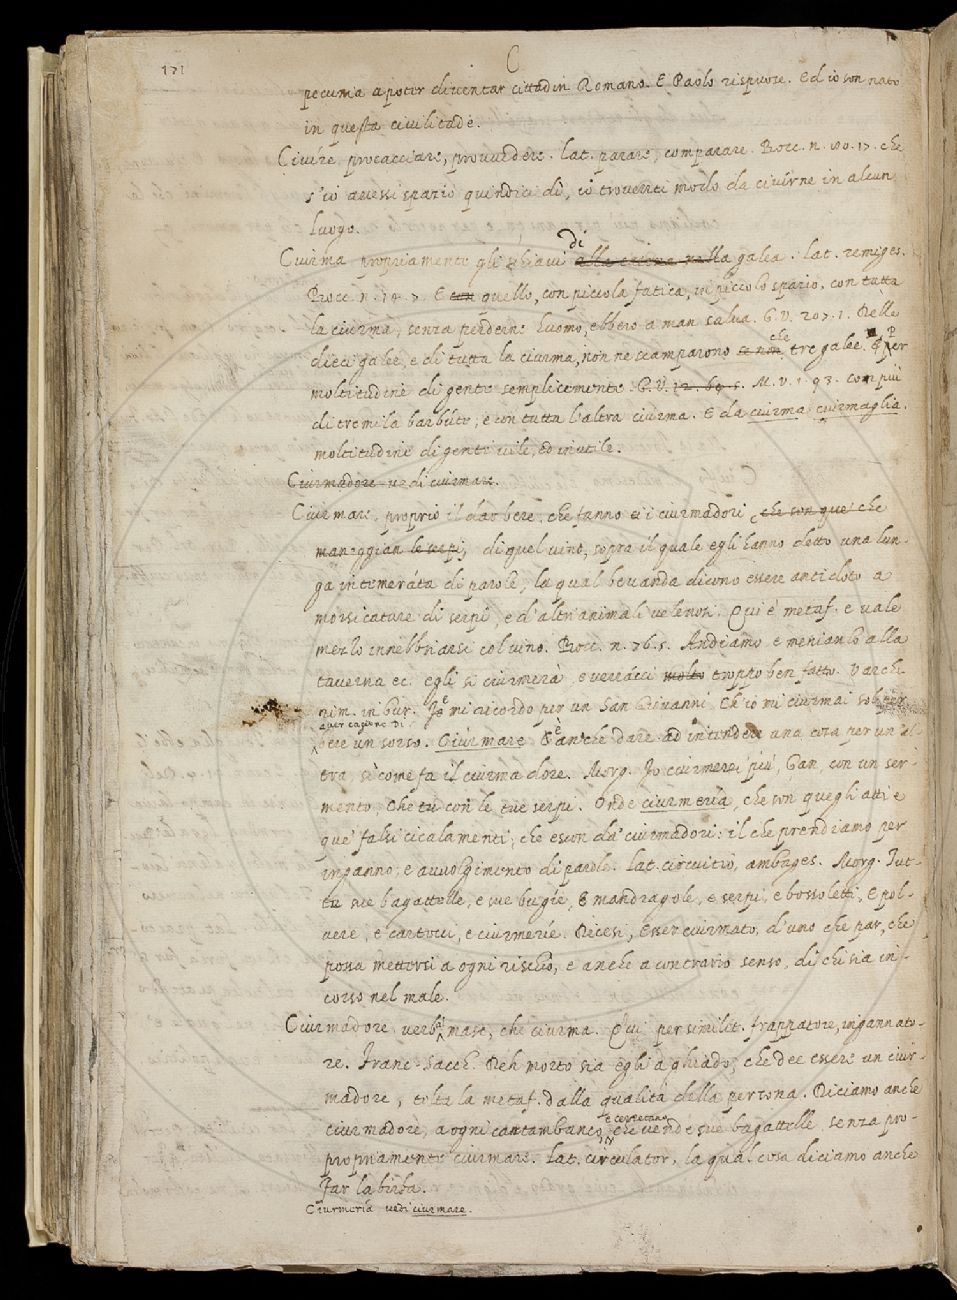 171
C
pecunia a poter diventar cittadin Romano. E Paolo rispuose. Ed io son nato
in questa civilitade.
Civíre, procacciare, provvedere. Lat. parare, comparare. Bocc. n. 80. 17. che
s'io avessi spazio quindici dì, io troverrei modo da civírne in alcun
luogo.
Ciurma propriamente gli schiavi di galea. Lat. remiges.
Bocc. n. 14. 7. E con quello, con piccola fatica, in piccolo spazio, con tutta
la ciurma, senza perderne huomo, ebbero a man salva. G.V. 207. 1. Delle
dieci galee, e di tutta la ciurma, non ne scamparono che tre galee. E per
moltitudine di gente semplicemente. G.V. 12. M.V. 1. 93. con più
di tremila barbúte, e con tutta l'altra ciurma. E da ciurma ciurmaglia.
moltitudine di gente vile, ed inutile.
Ciurmadore v. di ciurmare.
Ciurmare, proprio il dar bere, che fanno i ciurmadori, che son que' che
maneggian le serpi, di quel vino, sopra il quale egli hanno detto una lun-
ga intemeráta di parole, la qual bevanda dicono essere antidoto a
morsicature di serpi, e d'altri animali velenosi. Qui è metaf. e vale
mezlo innebbriarsi col vino. Bocc. n. 76. 5. Andiamo e menianlo alla
taverna ec. egli si ciurmerà, e verrácci molto troppo ben fatto. Varchi
rim. in bur. Io mi ricordo per un San Giovanni, Ch'io mi ciurmai sol per
aver cagione di
bere un sorso. Ciurmare è anche dare ad intendere una cosa per un'al-
tra, sì come fa il ciurmadore. Morg. Io ciurmerei più, Gan, con un ser-
mento, Che tu con le tue serpi. Onde ciurmería, che son quegli atti e
que' falsi cicalamenti, che escon da' ciurmadori: il che prendiamo per
inganno, e avvolgimento di parole. Lat. circuitio, ambages. Morg. Tut-
te sue bagattelle, e sue bugíe, E mandragole, e serpi, e bossoletti, E pol-
vere, e cartocci, e ciurmeríe. Dicesi, Esser ciurmato, d'uno che par, che
possa mettersi a ogni rischio, e anche a contrario senso, di chi sia in-
corso nel male.
Ciurmadore verbal masc, che ciurma. Qui per similit. frappatore, ingannato-
re. Franc. Sacch. Deh morto sia egli a ghiado, che dee essere un ciur-
madore, tolta la metaf. dalla qualità della persona. Diciamo anche
ciurmadore, a ogni cantambanco, e cerretano che vende sue bagattelle, senza pro-
propriamente ciurmare. Lat. circulator, la qual cosa diciamo anche
Far la birba.
Ciurmería vedi ciurmare.